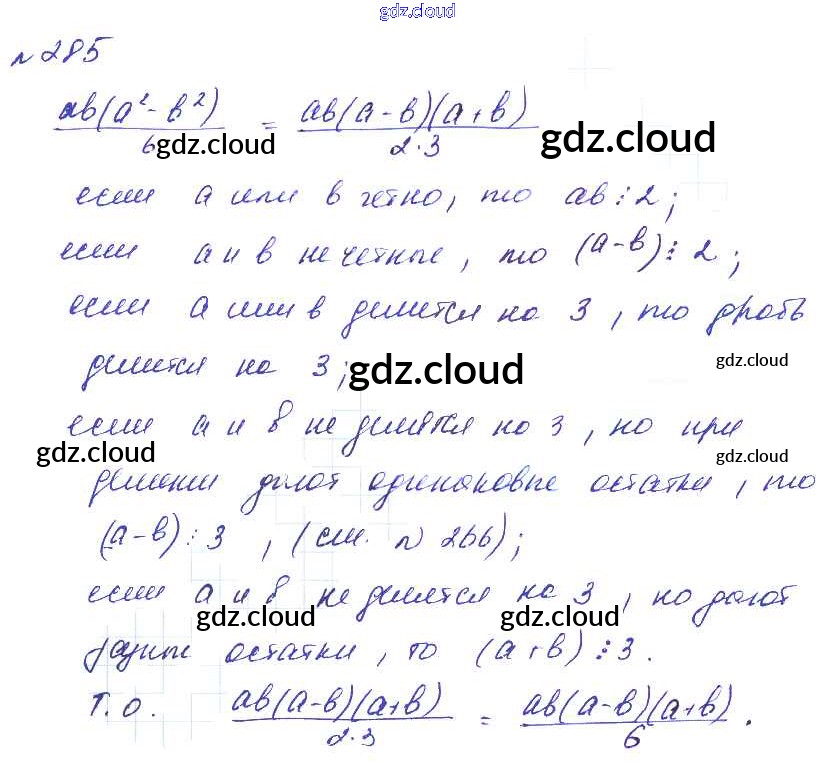 gdz.cloud
№ 285
ab(a² - b²)/6 = ab(a - b)(a + b)/2·3
gdz.cloud gdz.cloud
если a или b четно, то ab ⋮ 2;
если a и b нечетные, то (a-b) ⋮ 2;
если a или b делится на 3, то дробь
gdz.cloud
делится на 3;
gdz.cloud
если a и b не делятся на 3, но при
gdz.cloud gdz.cloud
делении дают одинаковые остатки, то
(a-b) ⋮ 3, (см. № 266);
если a и b не делятся на 3, но дают
gdz.cloud gdz.cloud gdz.cloud
разные остатки, то (a+b) ⋮ 3.
Т.О. ab(a-b)(a+b)/2·3 = ab(a-b)(a+b)/6.